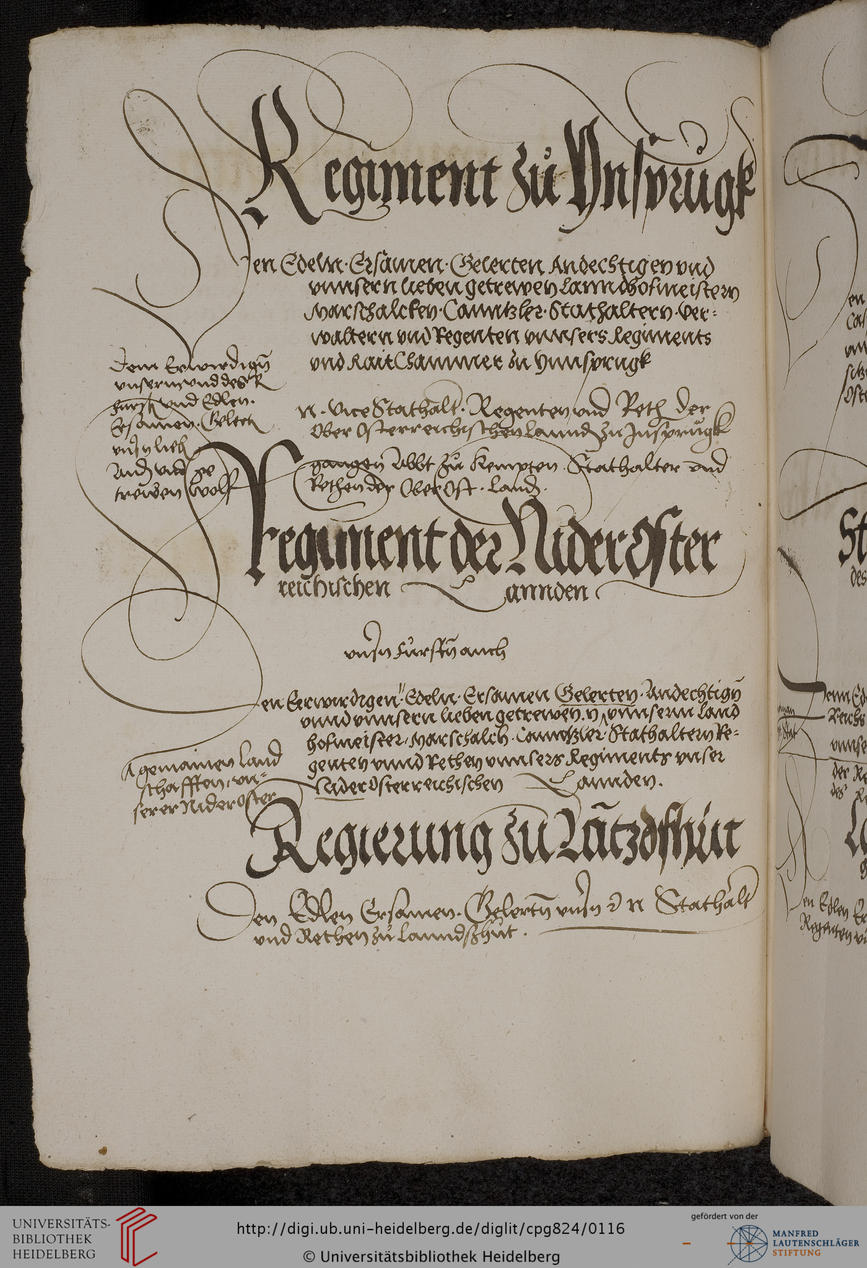 Regiment zů Ynsprugk
Den Edeln. Ersamen. Gelerten Andechtigen vnd
vnnsern lieben getrewen Lanndhofmeistern
Marschalcken. Canntzler. Stathaltern. Ver=
waltern vnd Regenten vnnsers Regiments
vnd Rait Chammer zu Ynnsprugk
Dem Eerwirdign
vnserm vnd des R
Furstn vnd Edlen.
Ersamen. Gelert
vnsn lieb
Andn vnd ge
trewen Wolf
N. Vice Stathalt. Regenten vnd Reth der
Ober Osterreichischen Lannd zu Jnsprugk
gangen Abbt zu Kempten. Stathalter vnd
Rethen der Ober Ost. Land.
Regiment der Nider Oster
reichischen Lannden
vnsn Fursten auch
Den Eerwirdigen Edeln. Ersamen Gelerten. Andechtign
vnnd vnnsern lieben getrewen. N vnnserm Land
hofmeister. Marschalch. Canntzler. Stathaltern Re=
genten vnnd Rethen vnnsers Regiments vnser
Niderosterreichischen Lannden.
gemainen Land
schafften, vn=
serer Nideroster
Regierung zu Lātzdshut
Den Edlen Ersamen. Gelertn vnsn d N Stathalt
vnd Rethen zu Lanndszhut.
UNIVERSITÄTS-
BIBLIOTHEK
HEIDELBERG
http://digi.ub.uni-heidelberg.de/diglit/cpg824/0116
© Universitätsbibliothek Heidelberg
gefördert von der
MANFRED
LAUTENSCHLÄGER
STIFTUNG